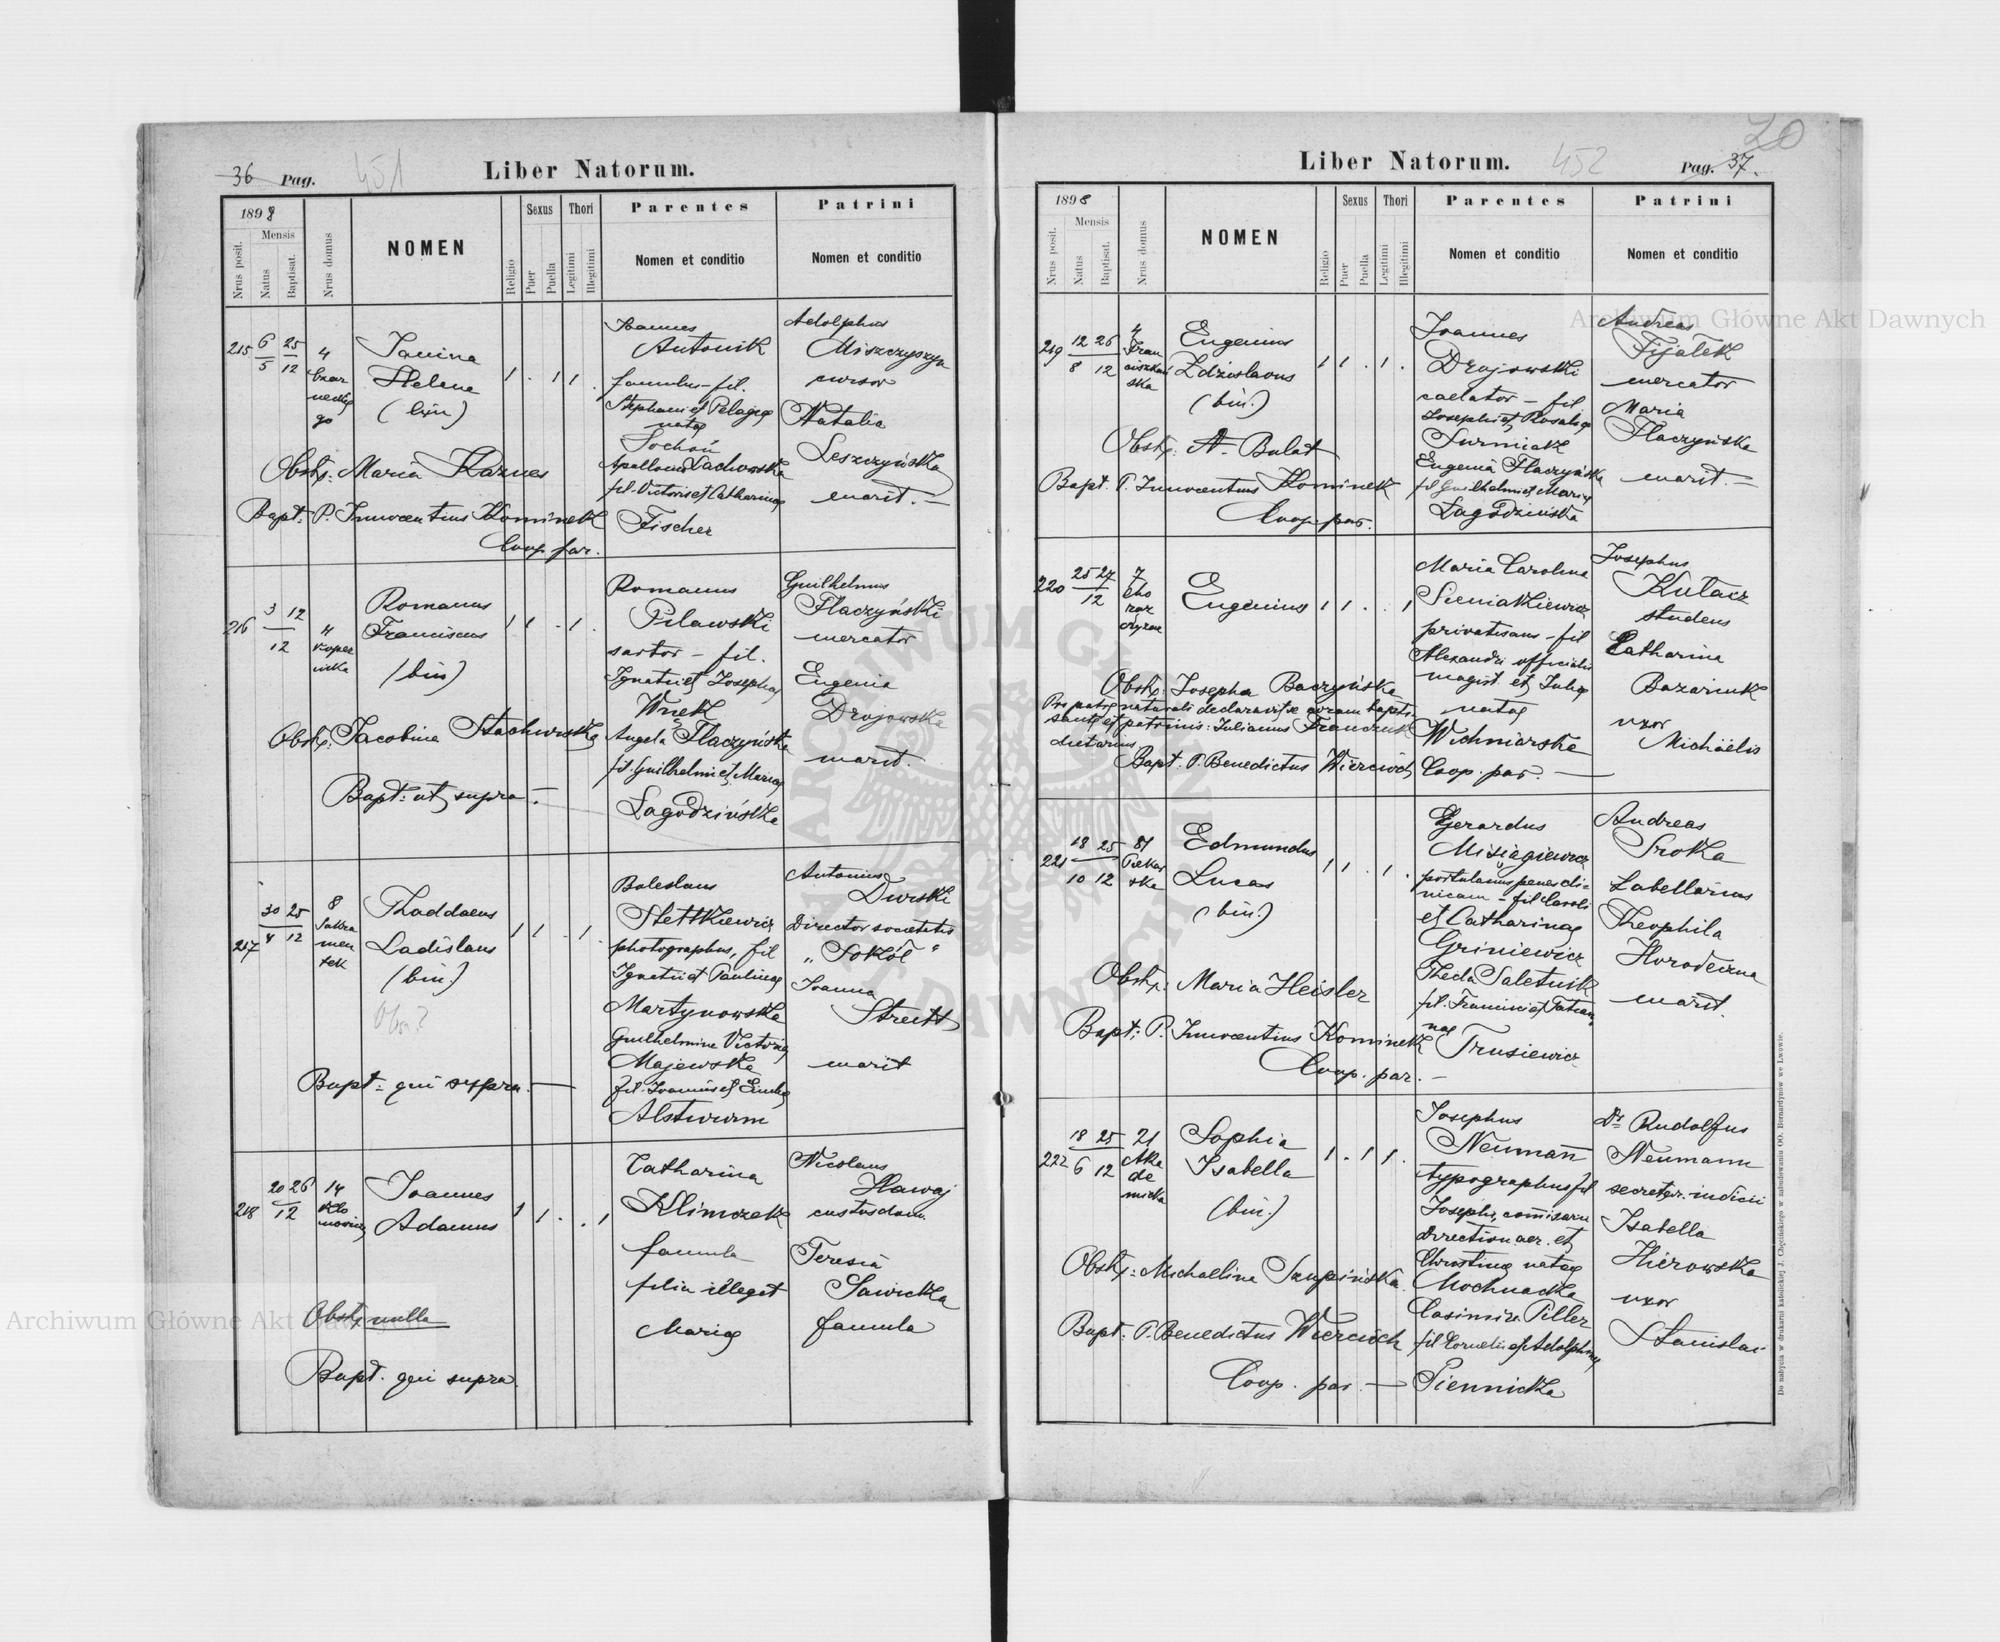 36 Pag. 451 Liber Natorum.
1898
Nrus posit.
Mensis
Natus
Baptisat.
Nrus domus
NOMEN
Religio
Sexus
Puer
Puella
Thori
Legitimi
Illegitimi
Parentes
Nomen et conditio
Patrini
Nomen et conditio
215
6 25
5 12
4
Czar
neckie
go
Janina
Helena
(bin)
1 . 1 1 .
Joannes
Antonik
famulus – fil.
Stephani et Pelagiae
natae
Sochań
Apollonia Lachowska
fil. Victoris et Catharinae
Fischer
Adolphus
Miszczyszyn
cursor
Natalia
Leszczyńska
marit. –
Obst: Maria Kaznes
Bapt: P. Innocentius Kominek
Coop. par.
216
3 12
12
4
Koper
nika
Romanus
Franciscus
(bin)
1 1 . 1 .
Romanus
Pilawski
sartor – fil.
Ignatii et Josephae
Wnęk
Angela Flaczyńska
fil. Guilhelmi et Mariae
Łagodzińska
Guilhelmus
Flaczyński
mercator
Eugenia
Drojowska
marit
Obst: Jacobina Stachurska
Bapt: ut supra –
217
30 25
4 12
8
Sakra
men
tek
Thaddaeus
Ladislaus
(bin.)
Obst?
1 1 . 1 .
Boleslaus
Stettkiewicz
photographus, fil
Ignatii et Paulinae
Martynowska
Guilhelmina Victoria
Majewska
fil. Joannis et Emiliae
Alstwurm
Antonius
Durski
Director societatis
„ Sokół “
Joanna
Streitt
marit
Bapt: qui supra. –
218
20 26
12
14
Klo
nowicza
Joannes
Adamus
1 1 . . 1
Catharina
Klimczak
famula
filia illegit
Mariae
Nicolaus
Hawaj
custos dom.
Teresia
Sawicka
famula
Obst: nulla
Bapt. qui supra.
Liber Natorum. 452 Pag. 37.
20
1898
Nrus posit.
Mensis
Natus
Baptisat.
Nrus domus
NOMEN
Religio
Sexus
Puer
Puella
Thori
Legitimi
Illegitimi
Parentes
Nomen et conditio
Patrini
Nomen et conditio
219
12 26
8 12
4
Fran
ciszkań
ska
Eugenius
Zdzislaus
(bin.)
1 1 . 1 .
Joannes
Drojowski
caelator – fil
Josephi et Rosaliae
Surmiak
Eugenia Flaczyńska
fil Guilhelmi et Mariae
Łagodzińska
Andreas
Fijałek
mercator
Maria
Flaczyńska
marit. –
Obst: A. Bulat
Bapt. P. Innocentius Kominek
Coop. par.
220
25 27
12
7
Cho
rąż
czyzna
Eugenius
1 1 . . 1
Maria Carolina
Sieniatkiewicz
privatisans – fil
Alexandri officialis
magist. et Juliae
natae
Wichniarska
Josephus
Kułacz
studens
Catharina
Bazariuk
uxor
Michaëlis
Obst: Josepha Baczyńska
Pro patre naturali declaravit se coram bapti-
sante et patrinis: Julianus Franczuk
dietarius
Bapt. P. Benedictus Wiercioch Coop. par. –
221
18 25
10 12
81
Piekar
ska
Edmundus
Lucas
(bin.)
1 1 . 1 .
Gerardus
Misiągiewicz
portulanus penes cli-
nicam – fil Caroli
et Catharinae
Griniewicz
Thecla Saletnik
fil. Francisci et Tatian
nae
Trusiewicz
Andreas
Sroka
tabellarius
Theophila
Horodeczna
marit.
Obst: Maria Heisler
Bapt: P. Innocentius Kominek
Coop. par. –
222
18 25
6 12
21
Aka
de
micka
Sophia
Isabella
(bin.)
1 . 1 1 .
Josephus
Neumann
typographus fil
Josephi, comissarii
Direction. aer. et
Christinae natae
Mochnacka
Casimira Piller
fil Cornelii et Adolphinae
Piennicka
Dr Rudolfus
Neumann
secretar. iudicii
Isabella
Hierowska
uxor
Stanislai
Obst: Michaelina Szupińska.
Bapt: P. Benedictus Wiercioch
Coop. par. –
Do nabycia w drukarni katolickiej J. Chęcińskiego w zabudowaniu OO. Bernardynów we Lwowie.
Archiwum Główne Akt Dawnych
Archiwum Główne Akt Dawnych
ARCHIWUM GŁÓWNE AKT DAWNYCH